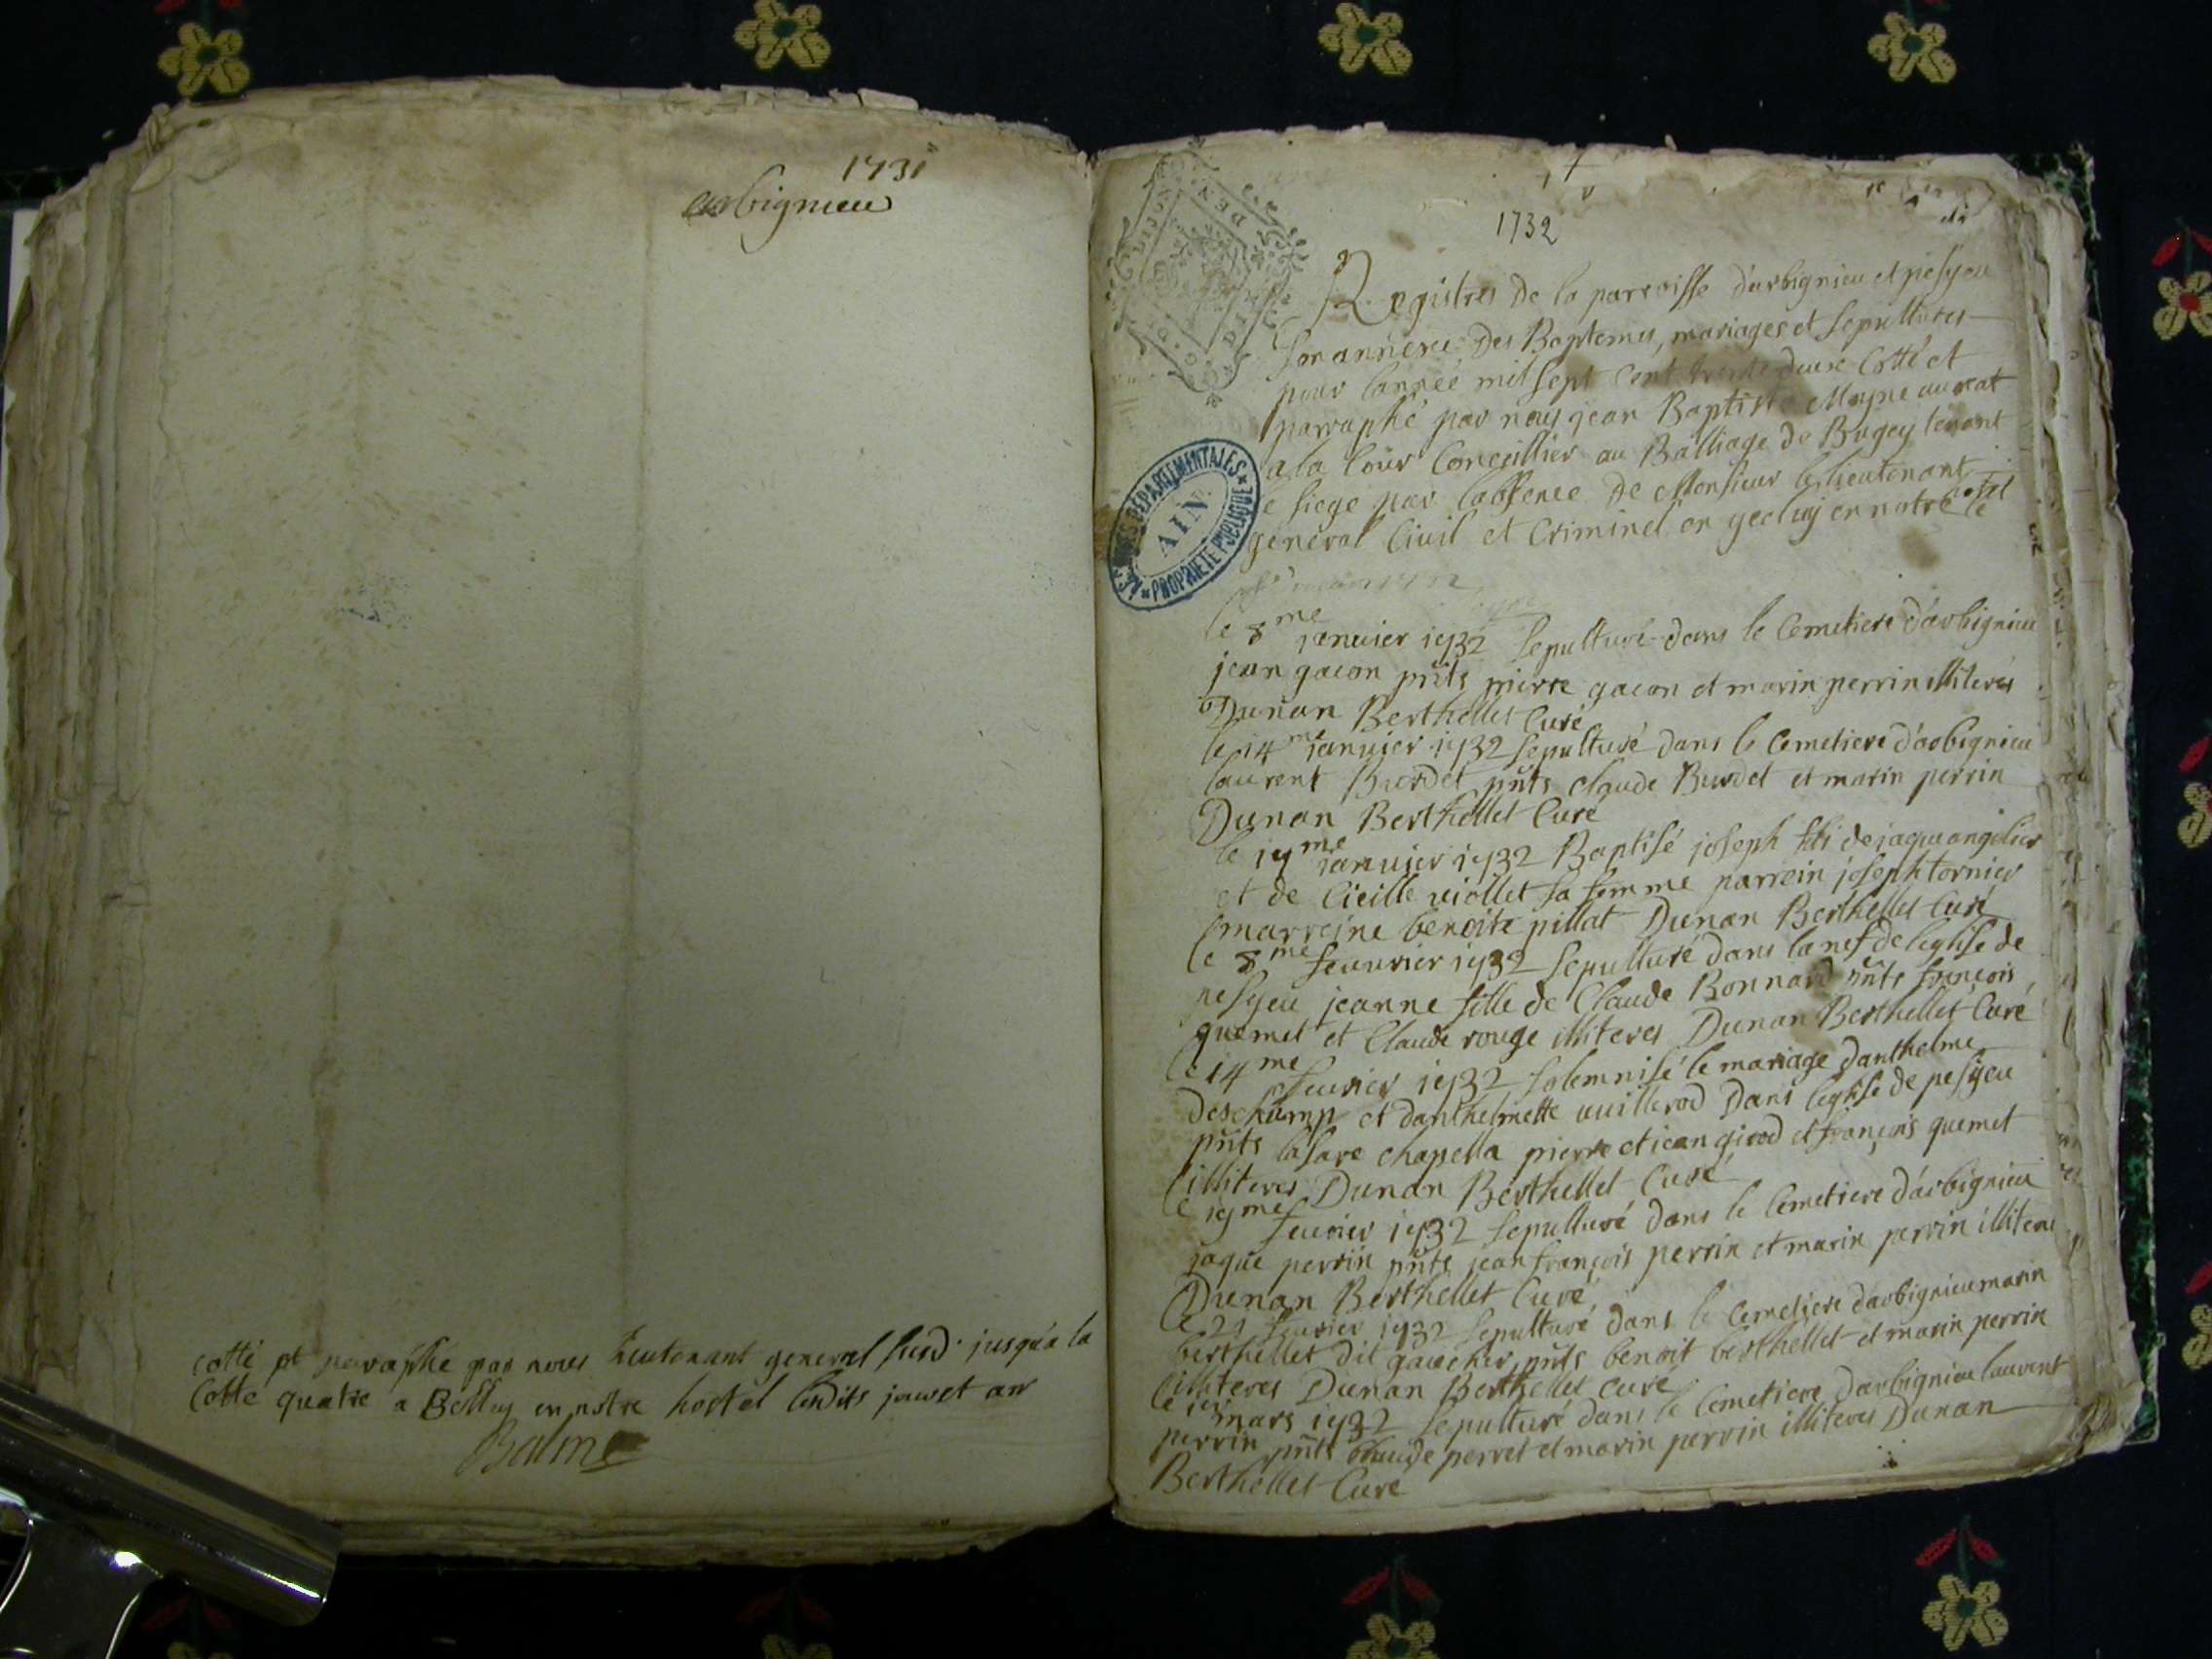 1731
arbignieu
cotté et paraphé par nous lieutenant general susd. jusqua la
Cotte quatre a Belley en nostre hostel lesdits jour et an
Balme
1732
Registres de la parroisse d'arbignieu et pesyeu
son annexe Des Baptemes, mariages et sepultures
pour l'année mil sept cent trente deux Cotté et
parraphé par nous jean Baptiste Moyne auocat
a la Cour Conceillier au Balliage de Bugey tenant
le siege par l'absence de Monsieur le lieutenant
general Ciuil et Criminel en yceluy en notre hotel le
ARCHIVES DÉPARTEMENTALES
AIN
PROPRIÉTÉ PUBLIQUE
le 8me januier 1732 sepulturé dans le Cemetiere d'arbignieu
jean gacon pnts pierre gacon et marin perrin illiterés
Dunan Berthellet Curé
le 14me januier 1732 sepulturé dans le Cemetiere d'arbignieu
laurent Burdet pnts claude Burdet et marin perrin
Dunan Berthellet Curé
le 17me januier 1732 Baptisé joseph fils de jaque angelier
et de Cicille viollet sa femme parrein joseph tornier
marreine benoite pillat Dunan Berthellet Curé
le 8me feuurier 1732 sepulturé dans la nef de leglise de
pesyeu jeanne fille de Claude Bonnard pnts françois
quemet et Claude rouge illiteres Dunan Berthellet Curé
le 14me feurier 1732 solemnisé le mariage danthelme
deschamp et danthelmette uuillerod dans leglise de pesyeu
pnts lasare chapella pierre et jean girod et françois quemet
illiteres Dunan Berthellet Curé
le 19me feurier 1732 sepulturé dans le Cemetiere d'arbignieu
jaque perrin pnts jean françois perrin et marin perrin illiteres
Dunan Berthellet Curé
le 21 feurier 1732 sepulturé dans le Cemetiere d'arbignieu marin
berthellet dit gaucher pnts benoit berthellet et marin perrin
illiteres Dunan Berthellet Curé
le 1er mars 1732 sepulturé dans le Cemetiere d'arbignieu laurent
perrin pnts Claude perret et marin perrin illiteres Dunan
Berthellet Curé